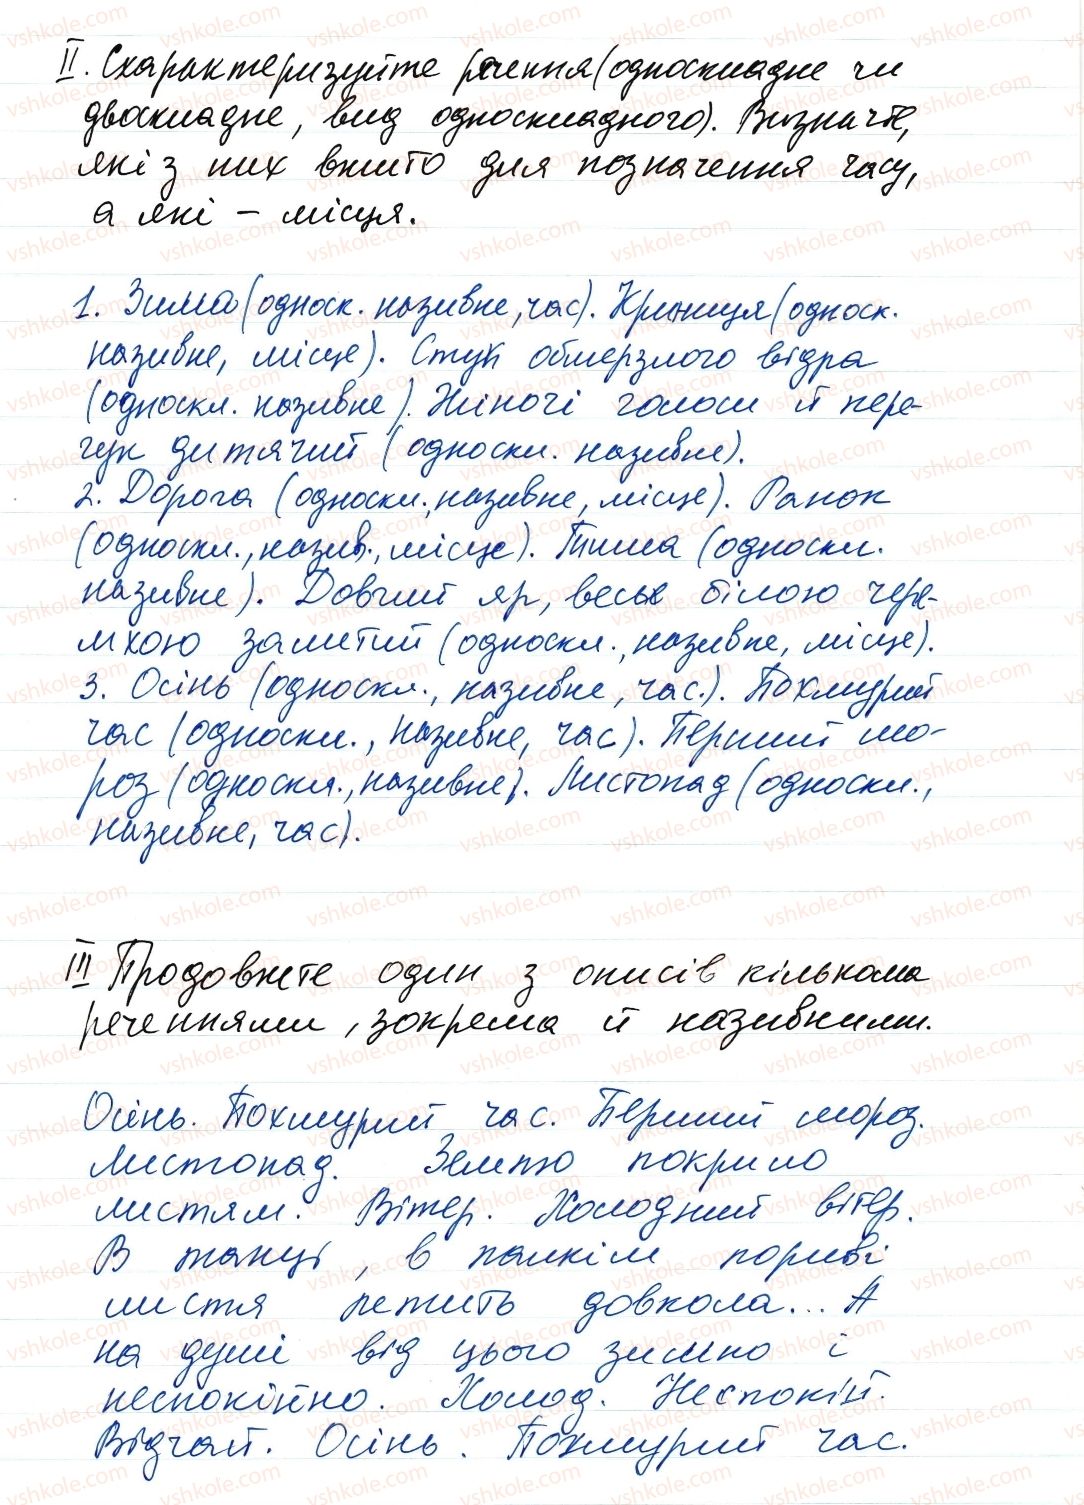 ІІ. Схарактеризуйте речення (односкладне чи
двоскладне, вид односкладного). Визначте,
які з них вжито для позначення часу,
а які – місця.
1. Зима (односк. називне, час). Криниця (односк.
називне, місце). Стук обмерзлого відра
(односкл. називне). Жіночі голоси й пере-
гук дитячий (односкл. називне).
2. Дорога (односкл., називне, місце). Ранок
(односкл., назив., місце). Тиша (односкл.
називне). Довгий яр, весь білою чере-
мхою залитий (односкл., називне, місце).
3. Осінь (односкл., називне, час.). Похмурий
час (односкл., називне, час). Перший мо-
роз (односкл., називне). Листопад (односкл.,
називне, час).
ІІІ Продовжте один з описів кількома
реченнями, зокрема й називними.
Осінь. Похмурий час. Перший мороз.
Листопад. Землю покрило
листям. Вітер. Холодний вітер.
В танці, в палкім пориві
листя летить довкола... А
на душі від цього зимно і
неспокійно. Холод. Неспокій.
Відчай. Осінь. Похмурий час.